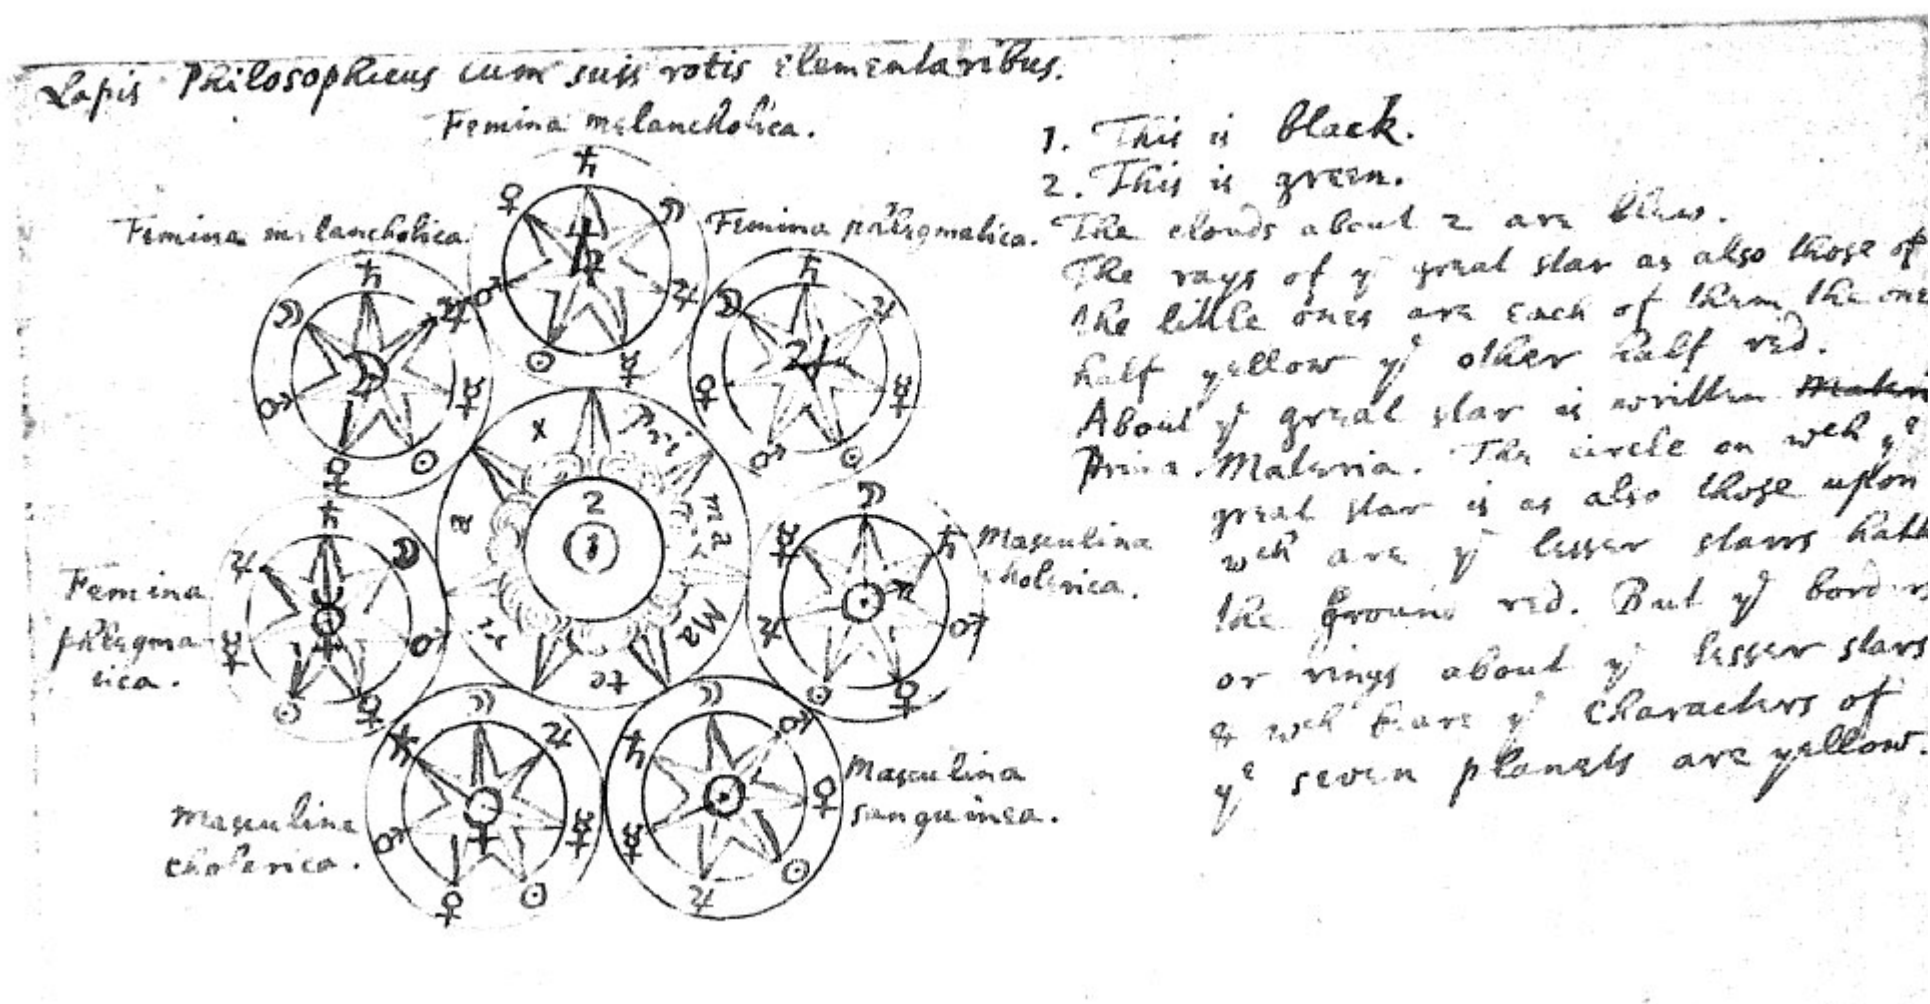 Lapis Philosophicus cum suis rotis elementaribus.
Femina melancholica.
Femina melancholica.
Femina phlegmatica.
Femina
phlegma
tica.
Masculina
cholerica.
Masculina
cholerica.
Masculina
sanguinea.
Pri
ma
Ma
te
ri
a
x
2
1
1. This is black.
2. This is green.
The clouds about 2 are blew.
The rays of ye great star as also those of
the little ones are each of them the one
half yellow ye other half red.
About ye great star is written
Prima Materia. The circle on wch ye
great star is as also those upon
wch are ye lesser starrs hath
the ground red. But ye borders
or rings about ye lesser stars
& wch beare ye characters of
ye seven planets are yellow.